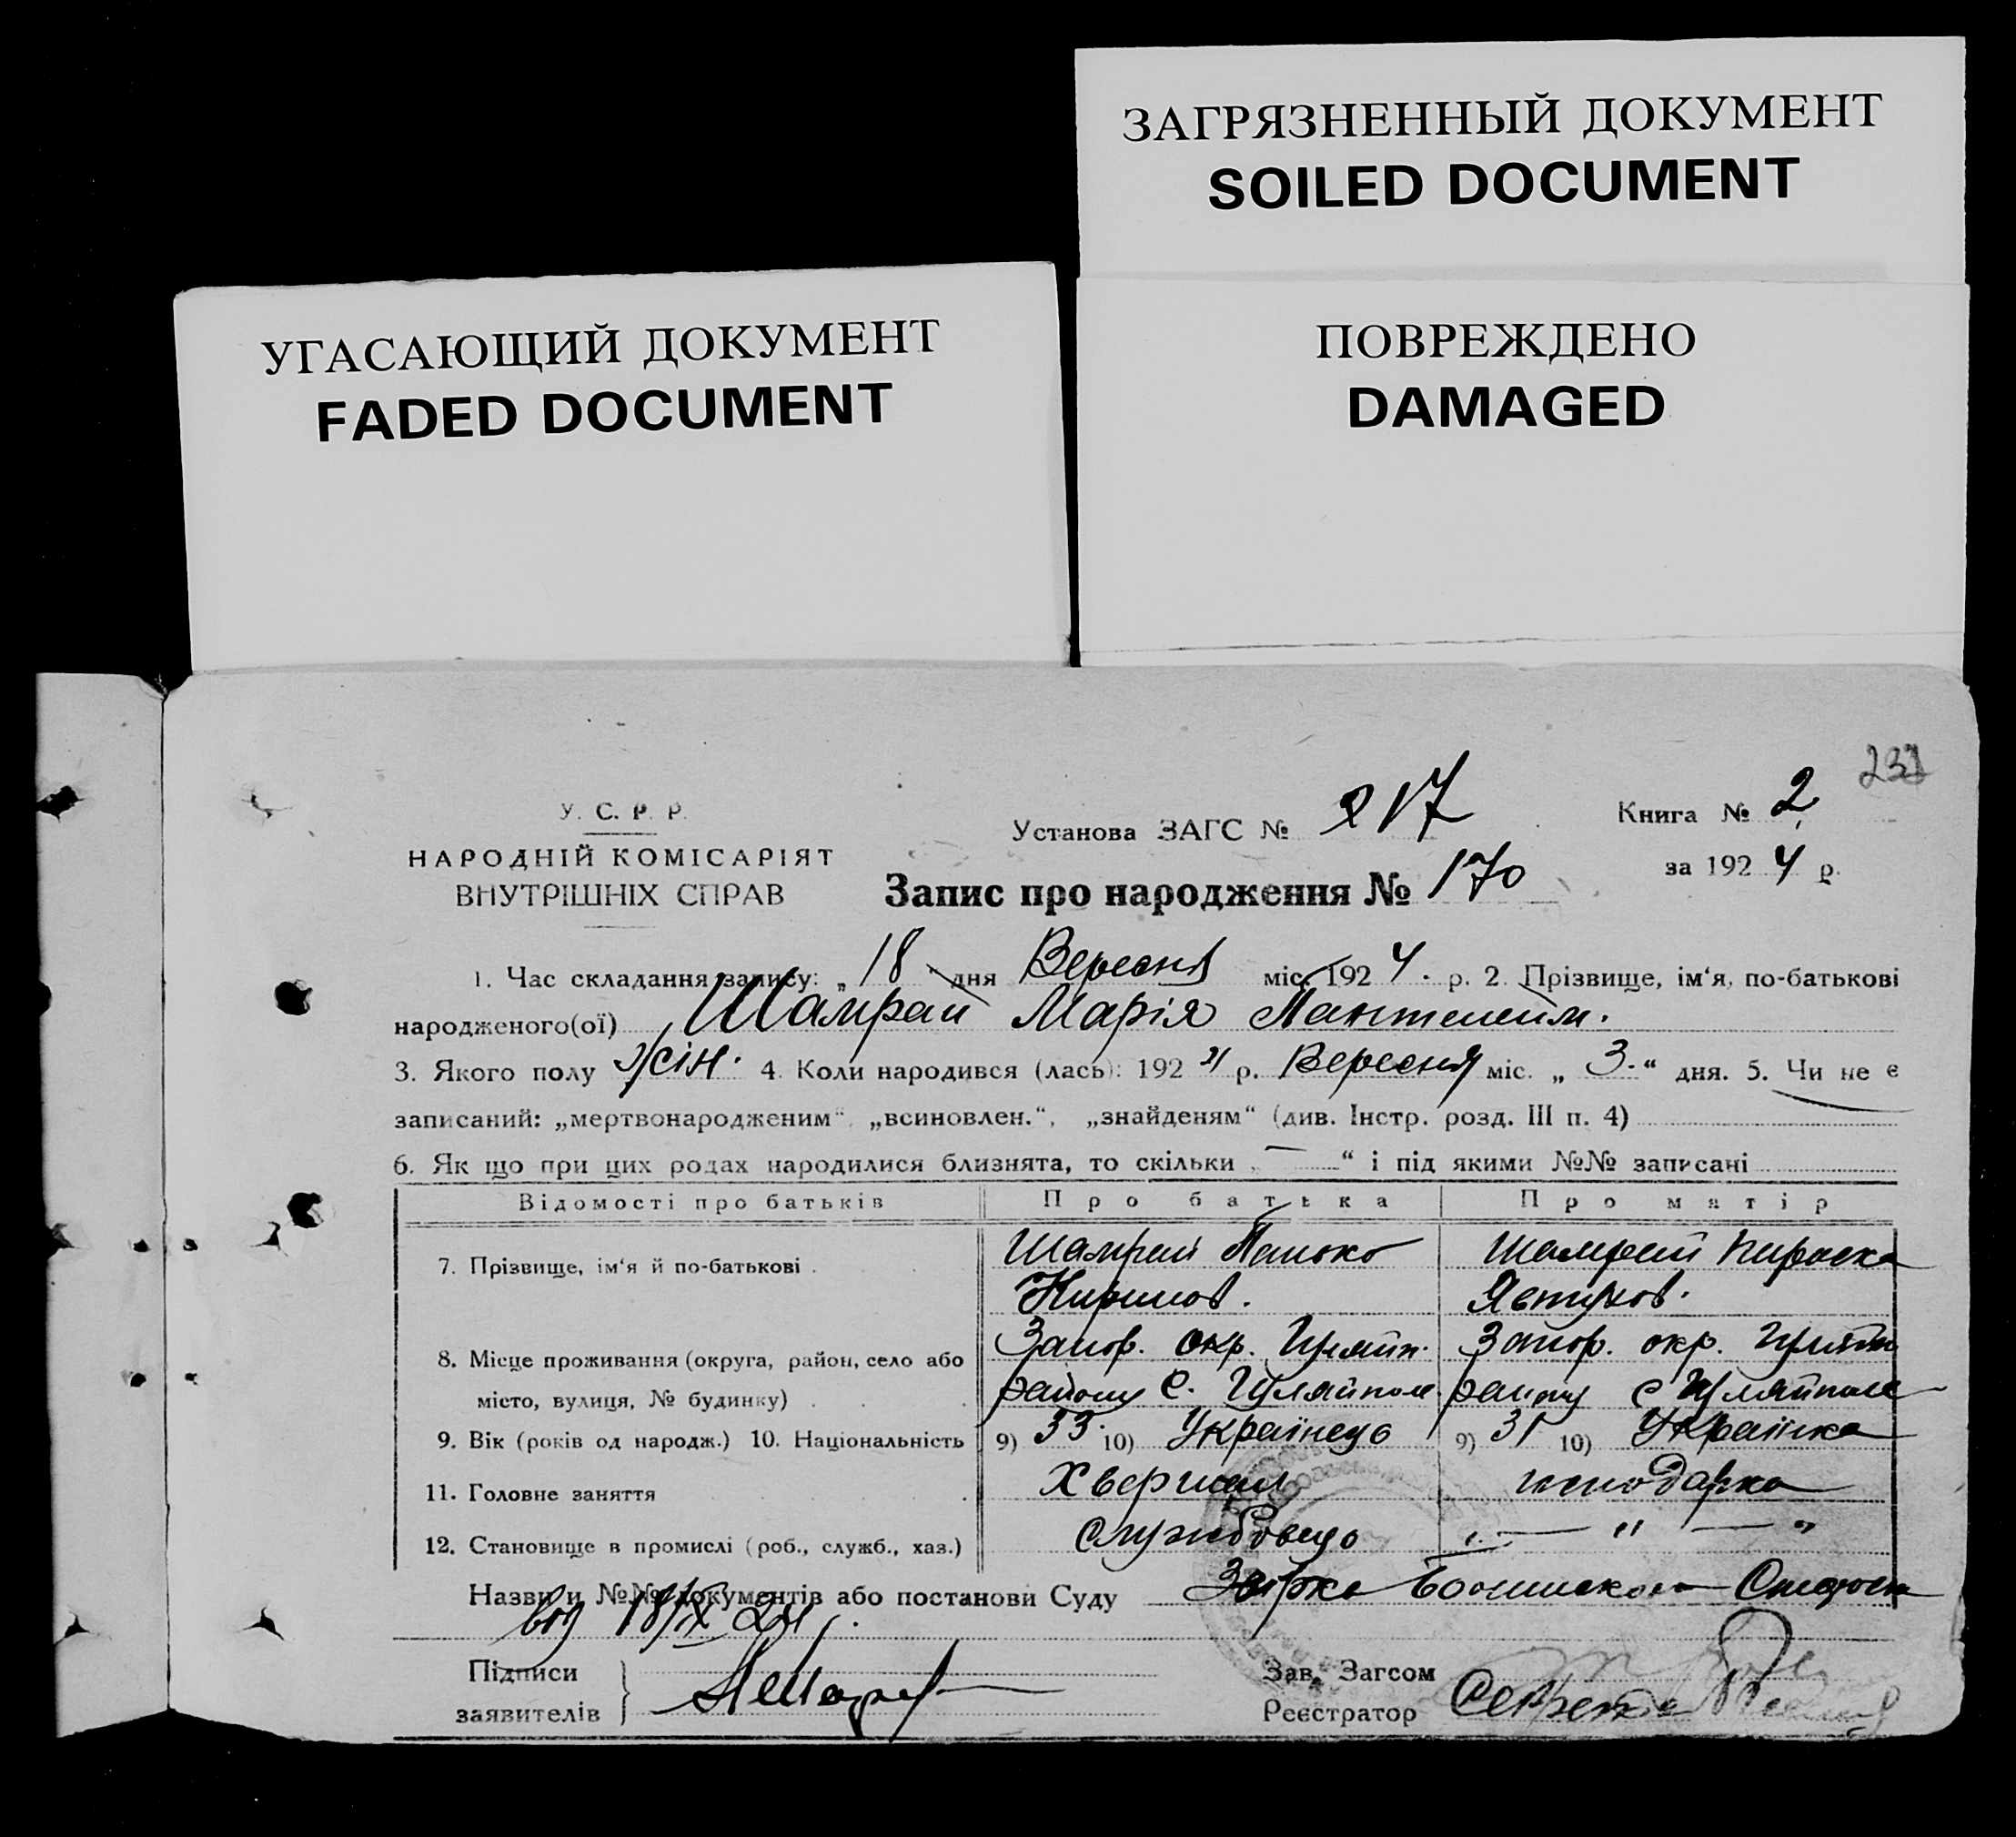 ЗАГРЯЗНЕННЫЙ ДОКУМЕНТ
SOILED DOCUMENT
УГАСАЮЩИЙ ДОКУМЕНТ
FADED DOCUMENT
ПОВРЕЖДЕНО
DAMAGED
У. С. Р. Р.
НАРОДНІЙ КОМІСАРІЯТ
ВНУТРІШНІХ СПРАВ
Установа ЗАГС № 217
Книга № 2
за 1924 р.
Запис про народження № 170
1. Час складання запису: „18“ дня Вересня міс. 1924. р. 2. Прізвище, ім'я, по-батькові
народженого(ої) Шамрай Марія
3. Якого полу жін. 4. Коли народився (лась): 1924 р. Вересня міс. „3.“ дня. 5. Чи не є
записаний: „мертвонародженим“, „всиновлен.“, „знайденям“ (див. Інстр. розд. III п. 4)
6. Як що при цих родах народилися близнята, то скільки „—“ і під якими №№ записані
Відомості про батьків Про батька Про матір
7. Прізвище, ім'я й по-батькові Шамрай Панько Шамрай
Явтухов.
8. Місце проживання (округа, район, село або Запор. окр. Гуляйп. Запор. окр. Гуляйп
місто, вулиця, № будинку) району с. Гуляйполе району с Гуляйполе
9. Вік (років од народж.) 10. Національність 9) 33 10) Українець 9) 31 10) Українка
11. Головне заняття
12. Становище в промислі (роб., служб., хаз.) Службовець „ — „ — „
Назви и №№ документів або постанови Суду
від 18/IX 24
Підписи
заявителів
Зав. Загсом
Реєстратор